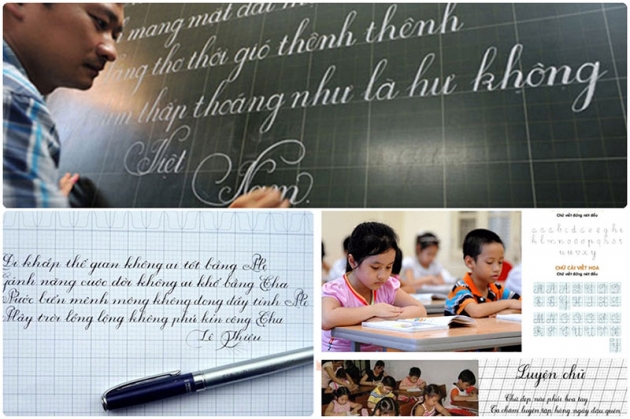 mang mặt đất
thơ thới gió thênh thênh
thấp thoáng như là hư không
Việt
Nam.
Đi khắp thế gian không ai tốt bằng Mẹ
Gánh nặng cuộc đời không ai khổ bằng Cha
Nước biển mênh mông không đong đầy tình Mẹ
Mây trời lồng lộng không phủ kín công Cha
Lê Thiêu
Chữ viết đứng nét đều
CHỮ CÁI VIẾT HOA
Luyện chữ
Chữ đẹp, nào phải hoa tay
Ta chăm luyện tập, hàng ngày